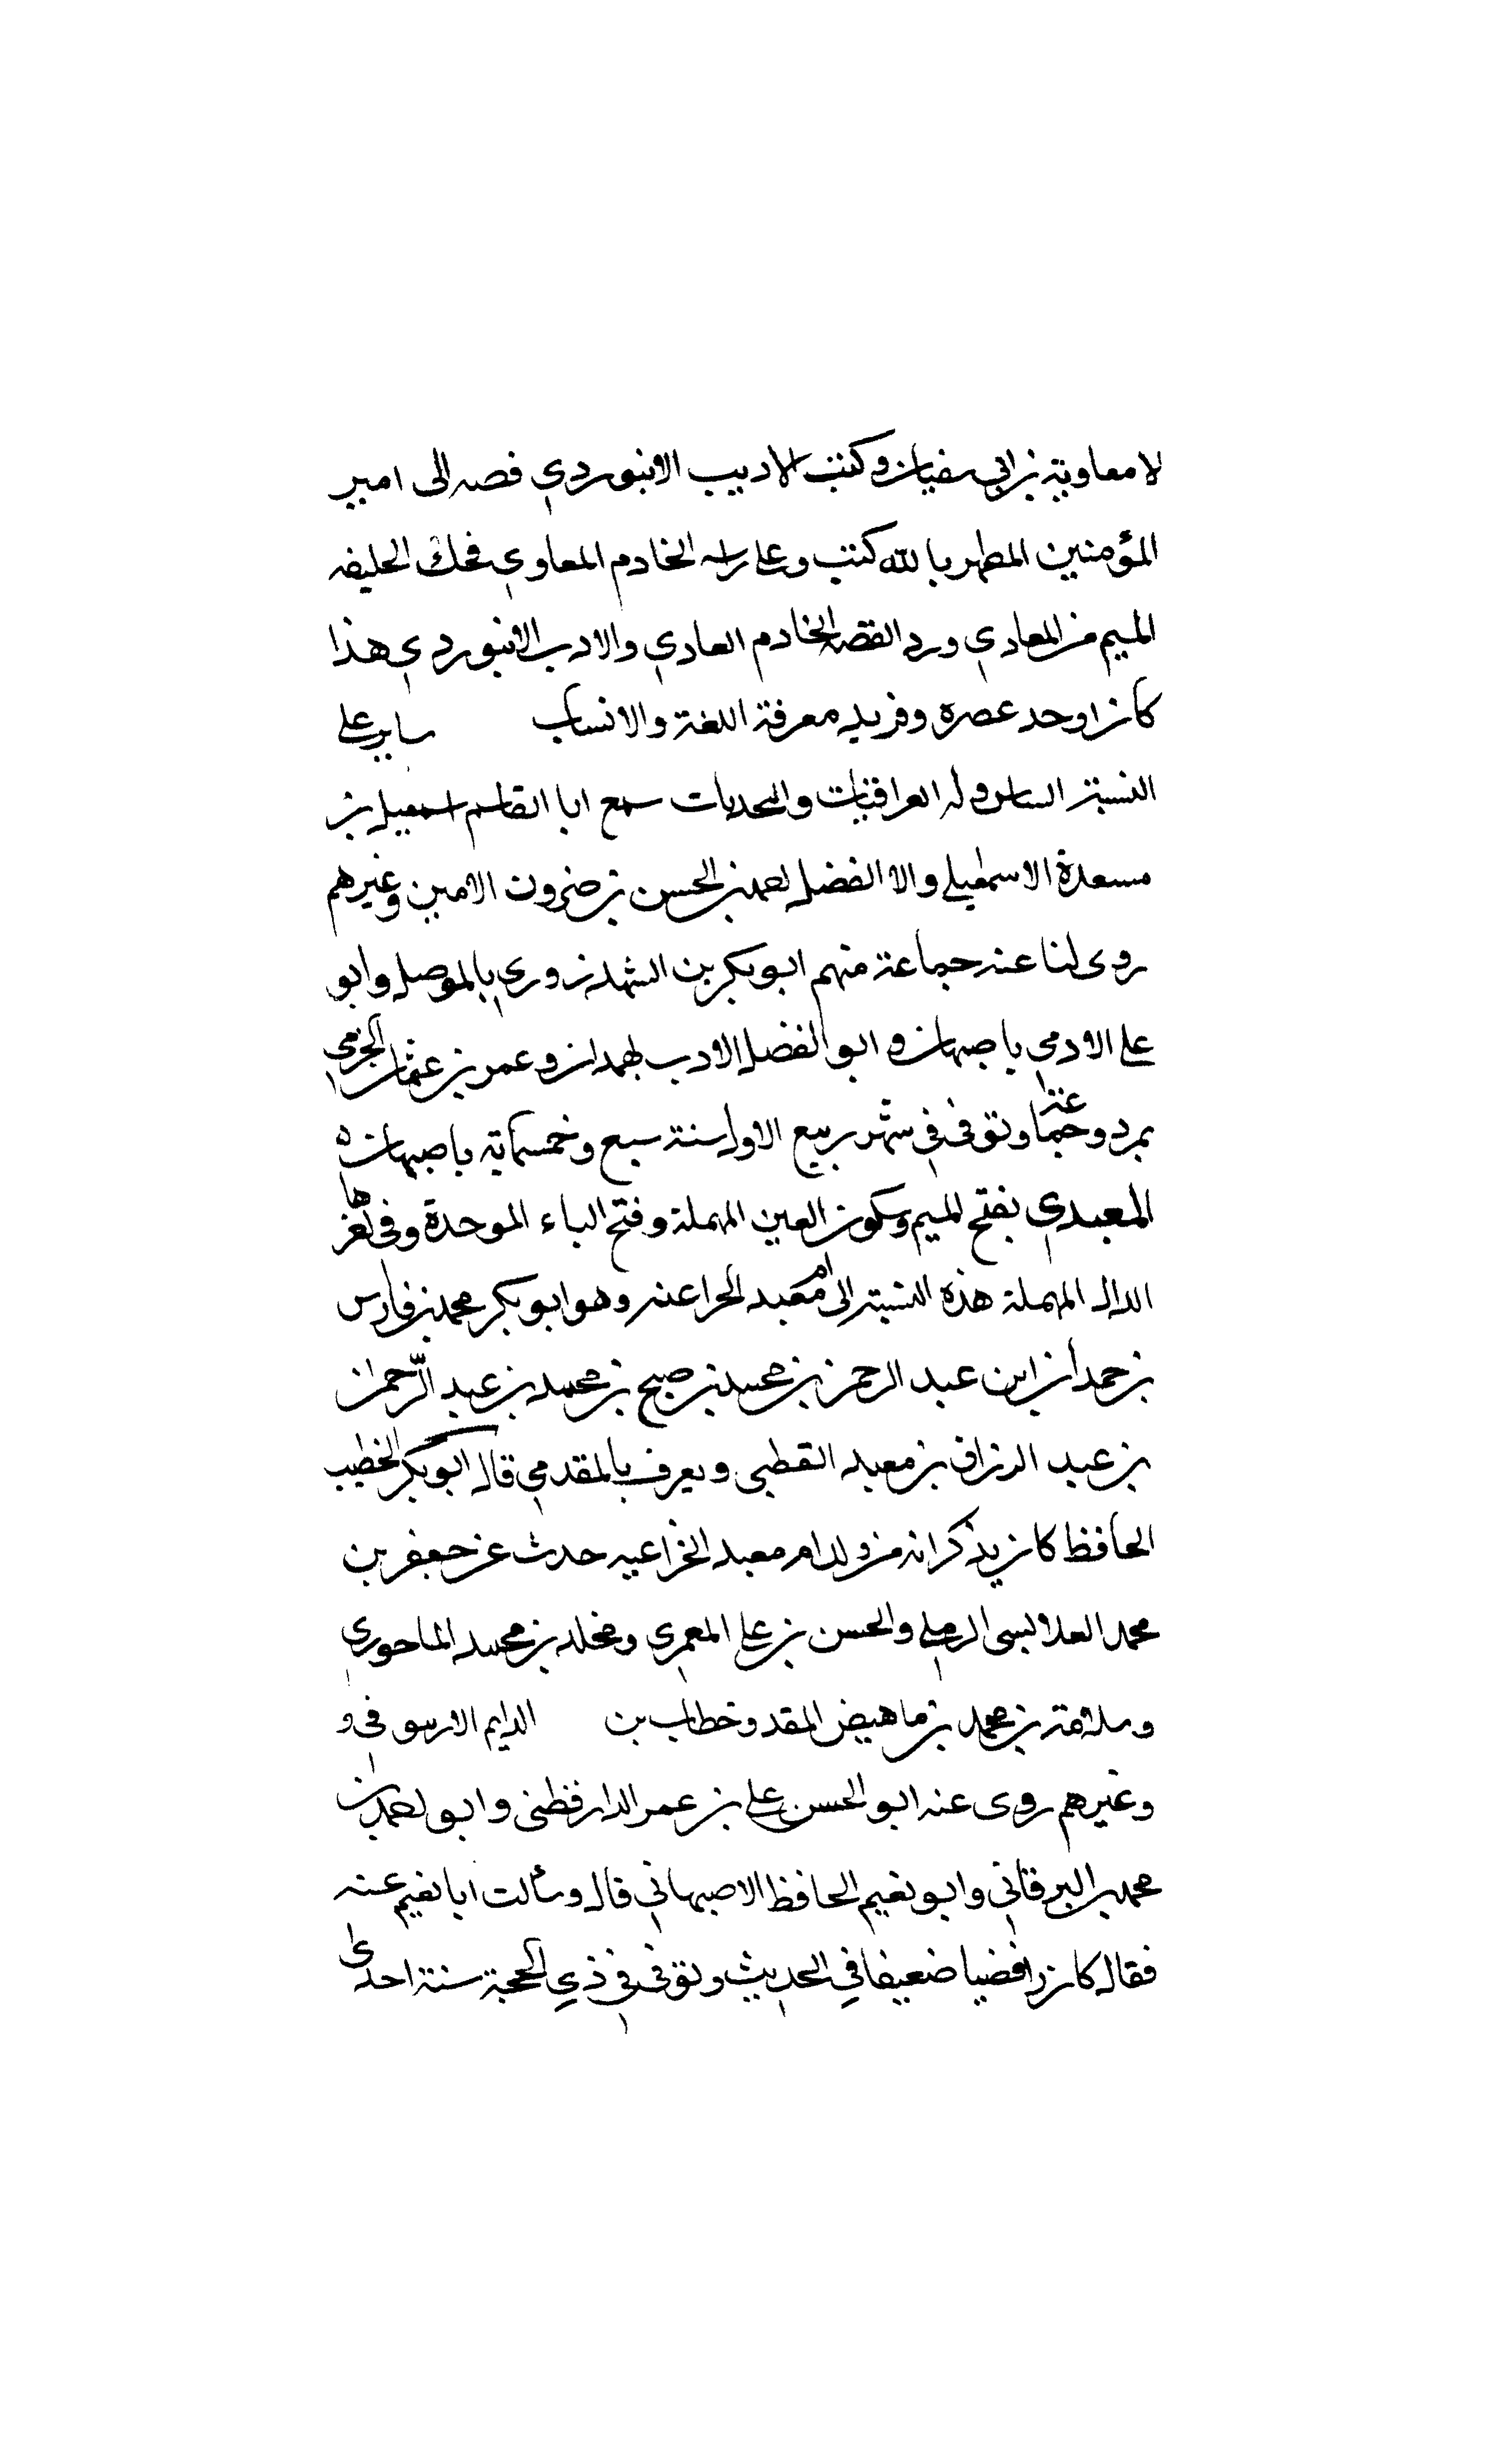 لا معاوية بن ابي سفيان وكتب الاديب الابيوردي قصه الى امير
المؤمنين المطهر بالله كتب وعلى راسه الخادم المعاوي فحك الخليفه
الميم من المعادي ورد القصه الخادم العادي والاديب الابيوردي هذا
كان اوحد عصره وفريد معرفة اللغة والانساب ساير على
النسبة وله العراقيات والنجديات سمع ابا القاسم اسمعيل بن
مسعدة الاسمعيلي وابا الفضل احمد بن الحسن بن خيرون الامين وغيرهم
روى لنا عنه جماعة منهم ابو بكر بن الشهرزوري بالموصل وابو
علي الادمي باصبهان و ابو الفضل الاديب بهمدان وعمر بن عثمان الجنزي
بمرو وتوفي في شهر ربيع الاول سنة سبع وخمسماية باصبهان ه
المعبدي بفتح الميم وسكون العين المهملة وفتح الباء الموحدة وفي اخرها
الدال المهملة هذه النسبة الى ام معبد الخزاعية وهو ابو بكر محمد بن فارس
بن حمدان ابن عبد الرحمن بن محمد بن صبيح بن محمد بن عبد الرحمان
بن عبد الرزاق بن معبد القطبي ويعرف بالمقدمي قال ابو بكر الخطيب
الحافظ كان يذكر انه من ولد ام معبد الخزاعيه حدث عن جعفر بن
محمد القلانسي الرملي والحسن بن علي المعمري ومخلد بن محمد الماحوري
وسلامة بن محمد بن ماهيض المقد وخطاب بن الدايم الارسوفي و
وغيرهم روى عنه ابو الحسن علي بن عمر الدارقطني وابو احمد بن
محمد البرقاني وابو نعيم الحافظ الاصبهاني قال وسألت ابا نعيم عنه
فقال كان رافضيا ضعيفا في الحديث وتوفي في ذي الحجة سنة احدى